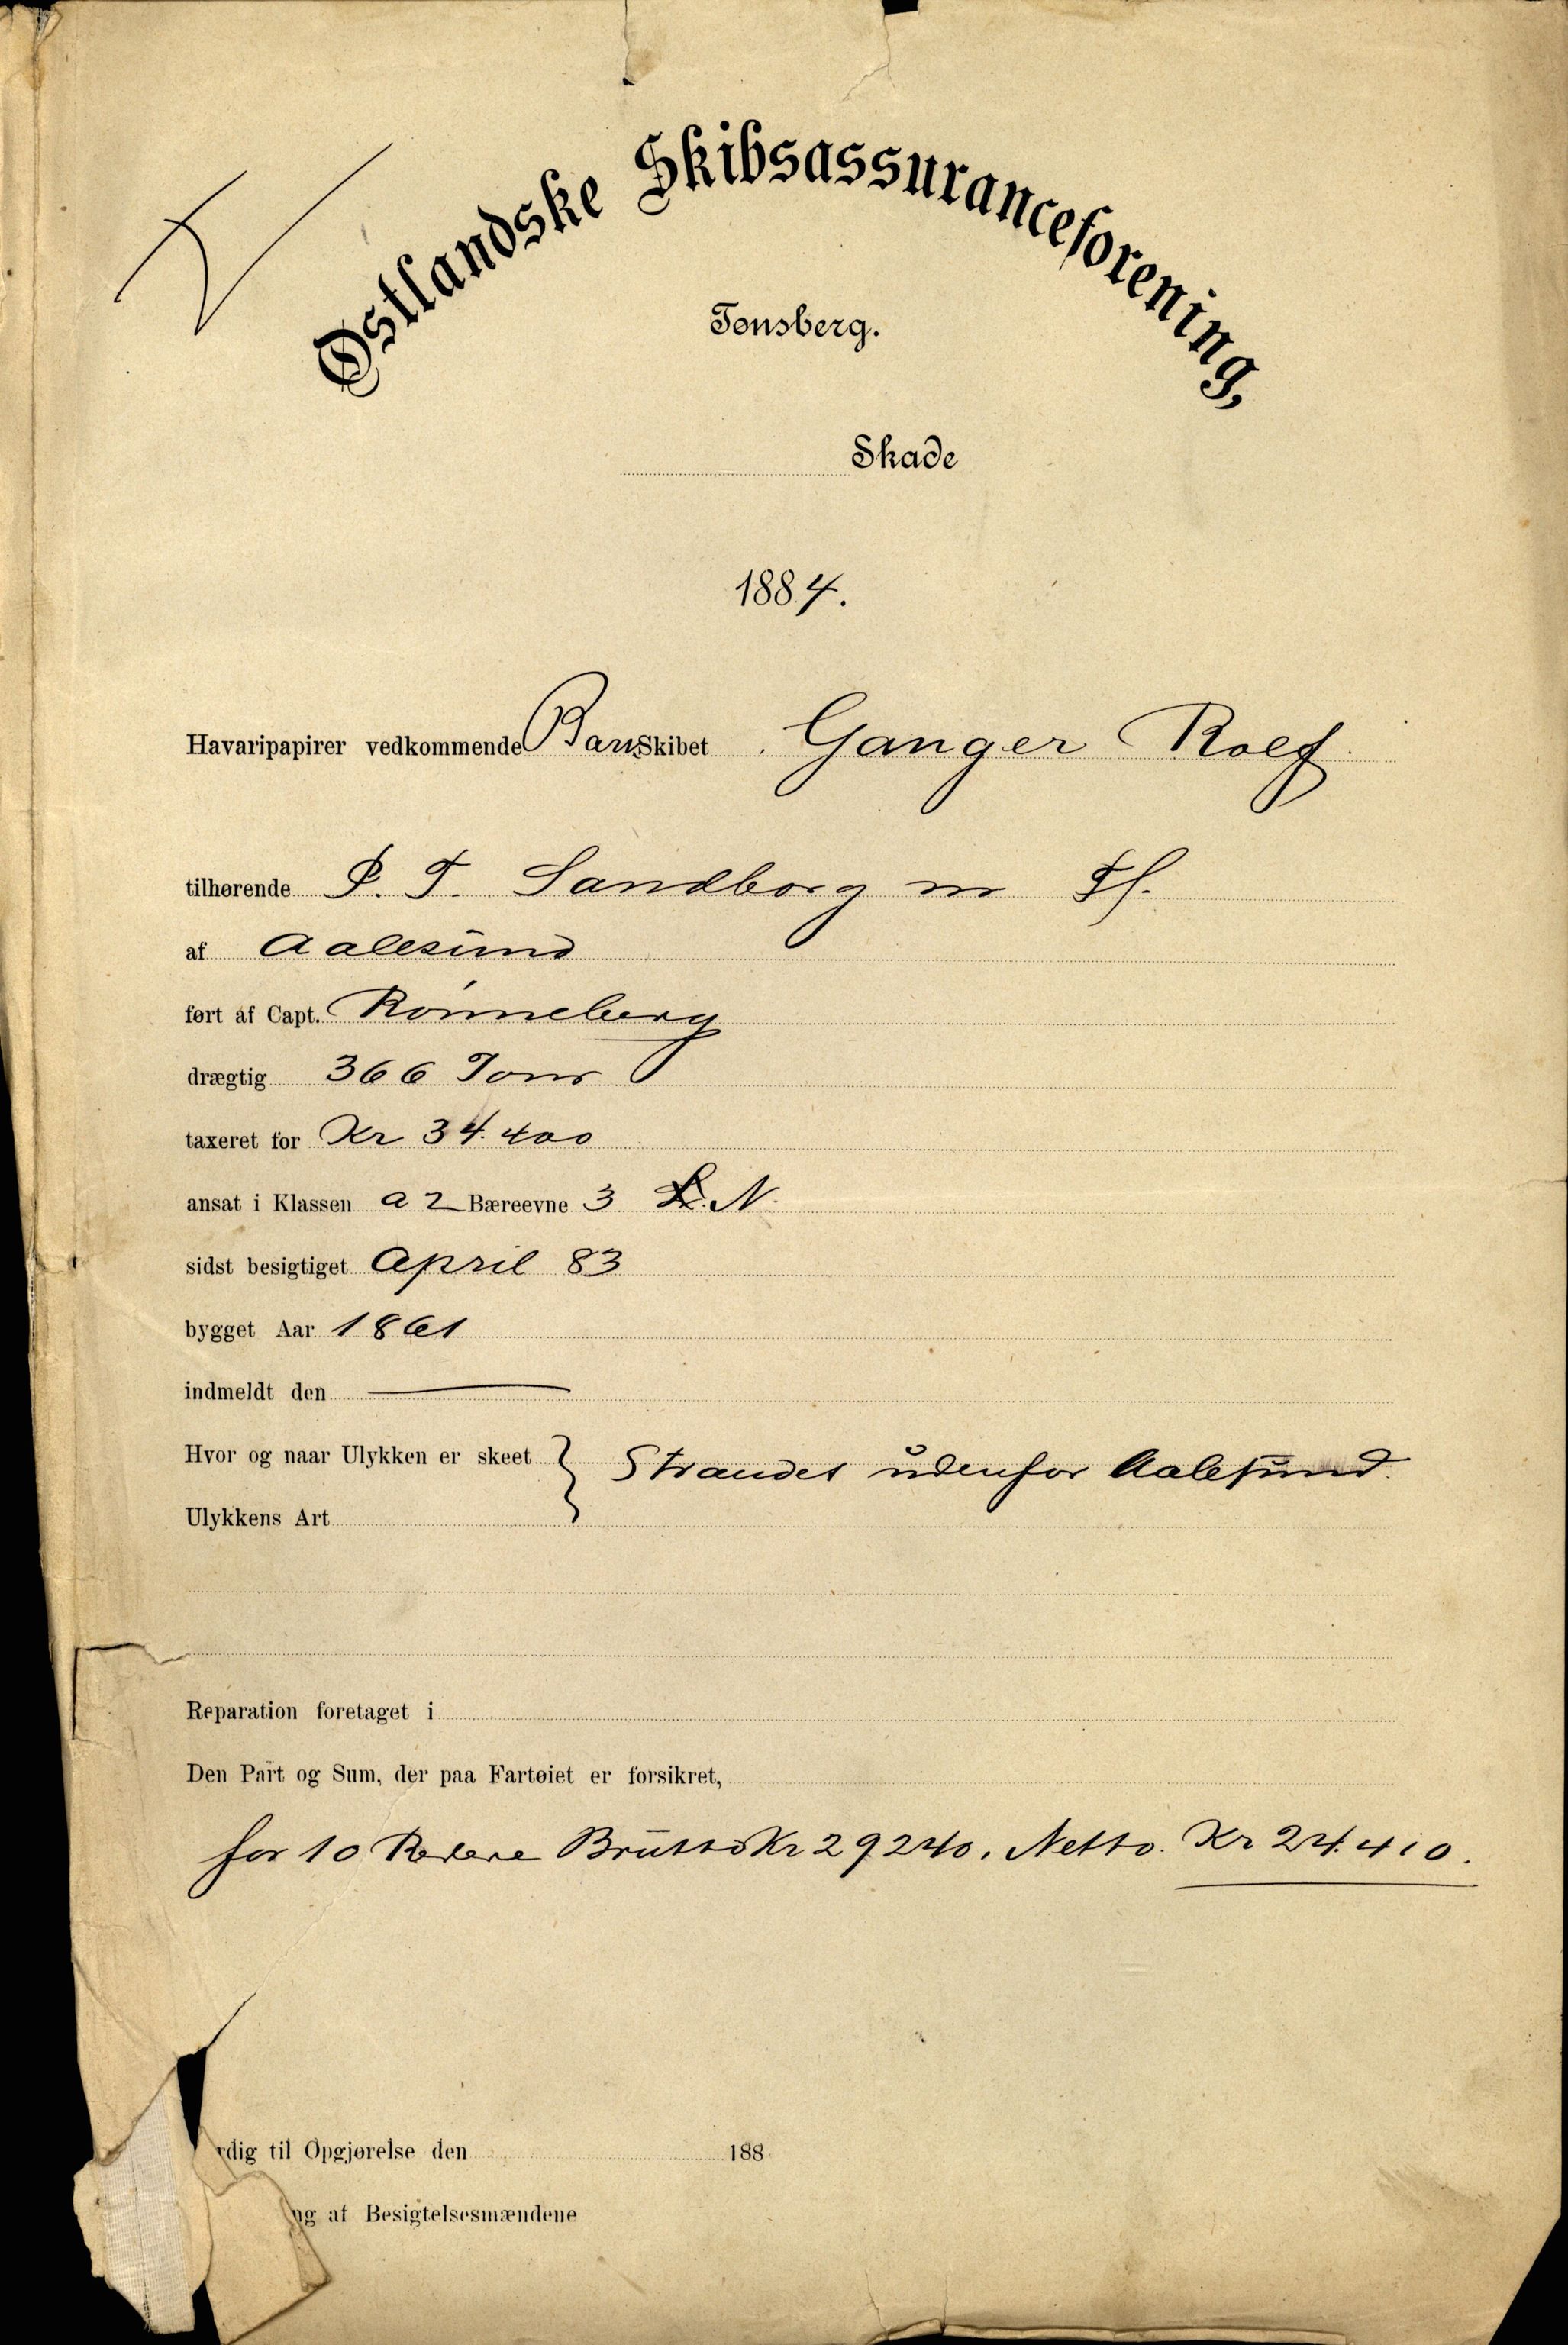 Østlandske Skibsassuranceforening,
Tønsberg.
Skade
1884.
Havaripapirer vedkommende Barkskibet Ganger Rolf
tilhørende P. T. Sandborg m Fl.
af Aalesund
ført af Capt. Rönneberg
drægtig 366 Tons
taxeret for Kr 34.400
ansat i Klassen a 2 Bæreevne 3 L. N.
sidst besigtiget April 83
bygget Aar 1861
indmeldt den
Hvor og naar Ulykken er skeet } Strandet udenfor Aalesund.
Ulykkens Art
Reparation foretaget i
Den Part og Sum, der paa Fartøiet er forsikret,
for 10 Redere Brutto Kr 29240. Netto. Kr 24.410.
rdig til Opgjørelse den 188
ng af Besigtelsesmændene